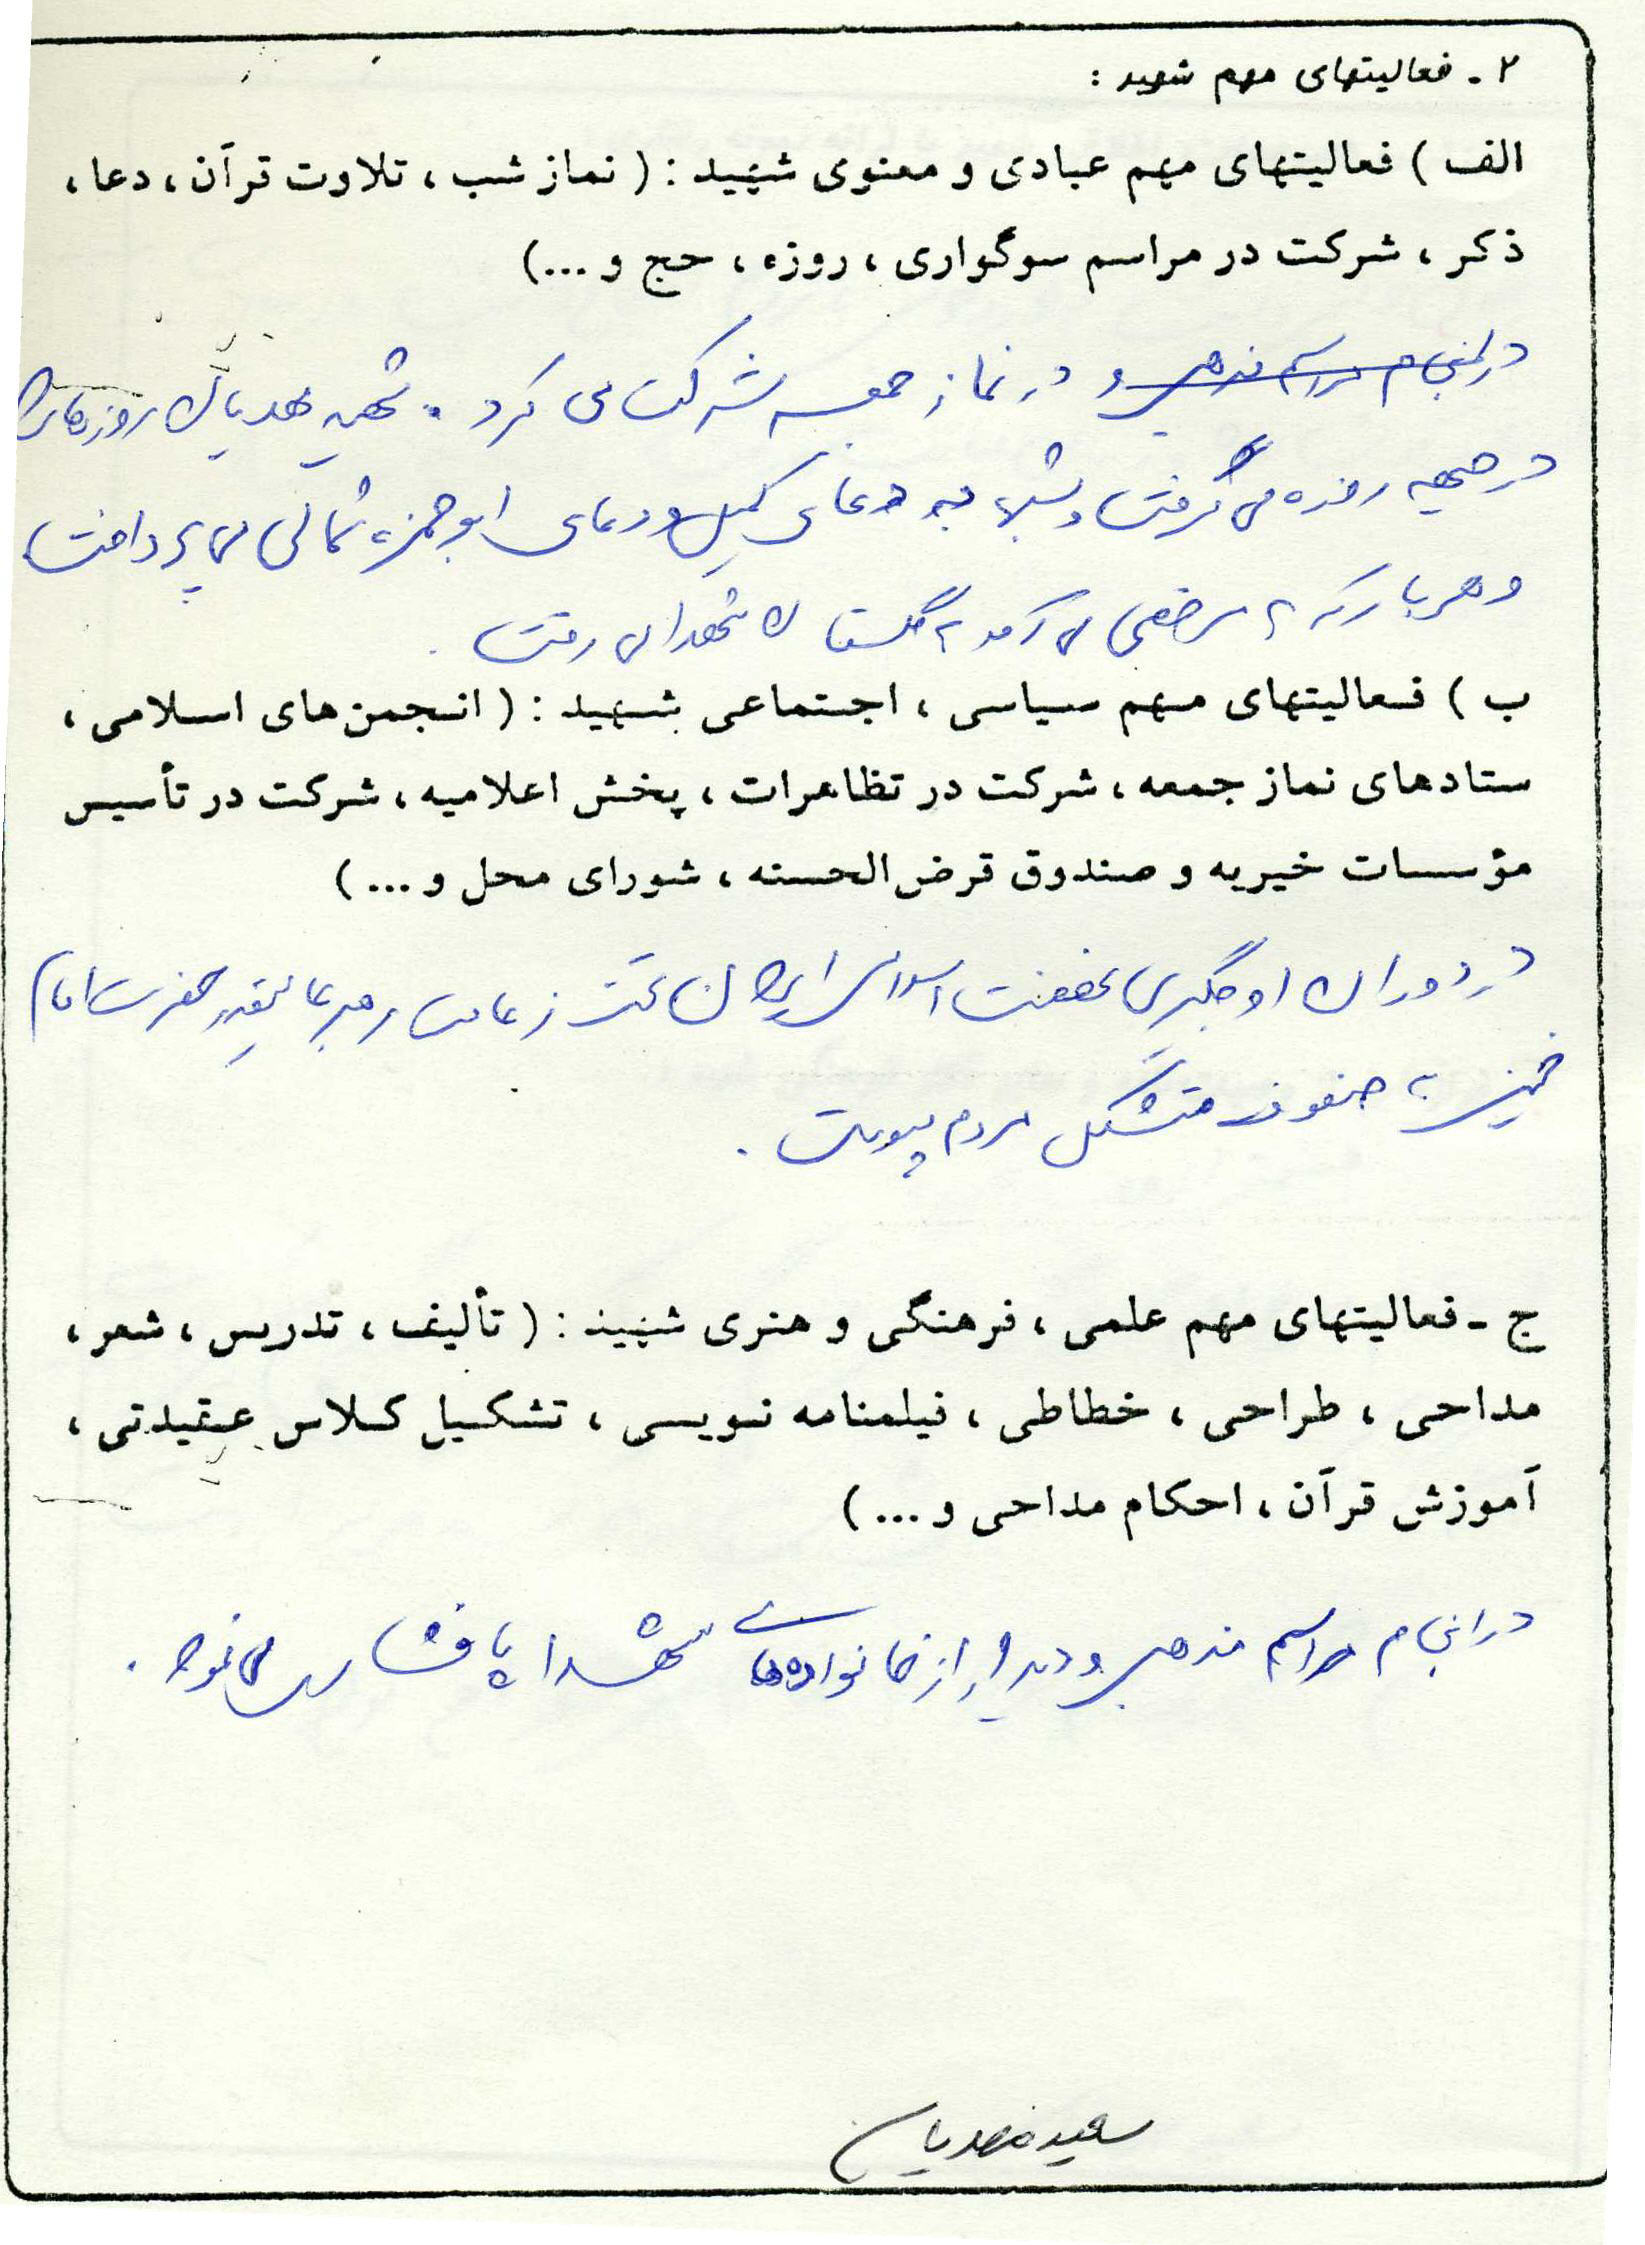 ۲ ـ فعالیتهای مهم شهید :
الف ) فعالیتهای مهم عبادی و معنوی شهید : ( نماز شب ، تلاوت قرآن ، دعا ،
ذکر ، شرکت در مراسم سوگواری ، روزه ، حج و ...)
در انجام مراسم مذهبی و در نماز جمعه شرکت می کرد . شهید مهدیان روزها را
در جبهه روزه می گرفت و شبها به دعای کمیل و دعای ابوحمزه ثمالی می پرداخت
و هر بار که به مرخصی می آمد به گلستان شهدا می رفت .
ب ) فعالیتهای مهم سیاسی ، اجتماعی شهید : ( انجمن های اسلامی ،
ستادهای نماز جمعه ، شرکت در تظاهرات ، پخش اعلامیه ، شرکت در تأسیس
مؤسسات خیریه و صندوق قرض الحسنه ، شورای محل و ... )
در دوران اوجگیری نهضت اسلامی ایران تحت زعامت رهبر عالیقدر حضرت امام
خمینی به صفوف متشکل مردم پیوست .
ج ـ فعالیتهای مهم علمی ، فرهنگی و هنری شهید : ( تألیف ، تدریس ، شعر ،
مداحی ، طراحی ، خطاطی ، فیلمنامه نویسی ، تشکیل کلاس عقیدتی ،
آموزش قرآن ، احکام مداحی و ... )
در انجام مراسم مذهبی و دیدار از خانواده های شهدا پافشاری می نمود .
سعید مهدیان